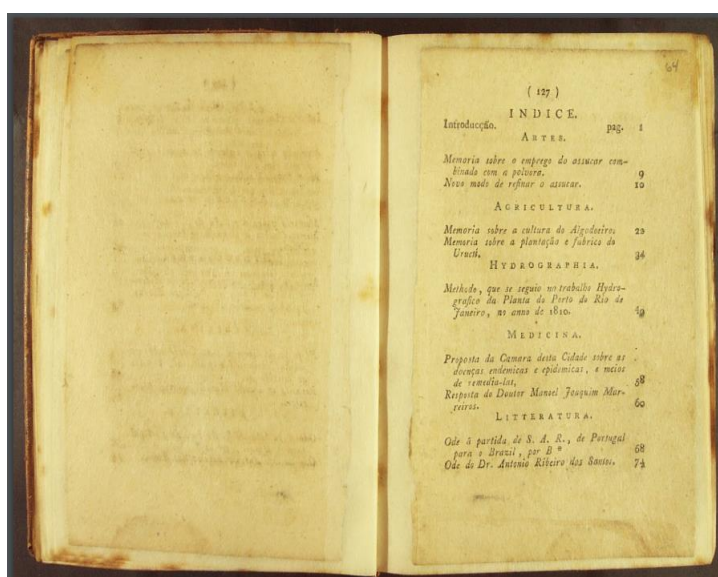 64
( 127 )
INDICE.
Introducção. pag. 1
ARTES.
Memoria sobre o emprego do assucar com-
binado com a polvora. 9
Novo modo de refinar o assucar. 10
AGRICULTURA.
Memoria sobre a cultura do Algodoeiro. 22
Memoria sobre a plantação e fabrico do
Urucú. 34
HYDROGRAPHIA.
Methodo, que se seguio no trabalho Hydro-
grafico da Planta do Porto do Rio de
Janeiro, no anno de 1810.
MEDICINA.
Proposta da Camara desta Cidade sobre as
doenças endemicas e epidemicas, e meios
de remedia-las. 58
Resposta do Doutor Manoel Joaquim Mar-
reiros. 60
LITTERATURA.
Ode á partida de S. A. R., de Portugal
para o Brazil, por B * 68
Ode do Dr. Antonio Ribeiro dos Santos. 74